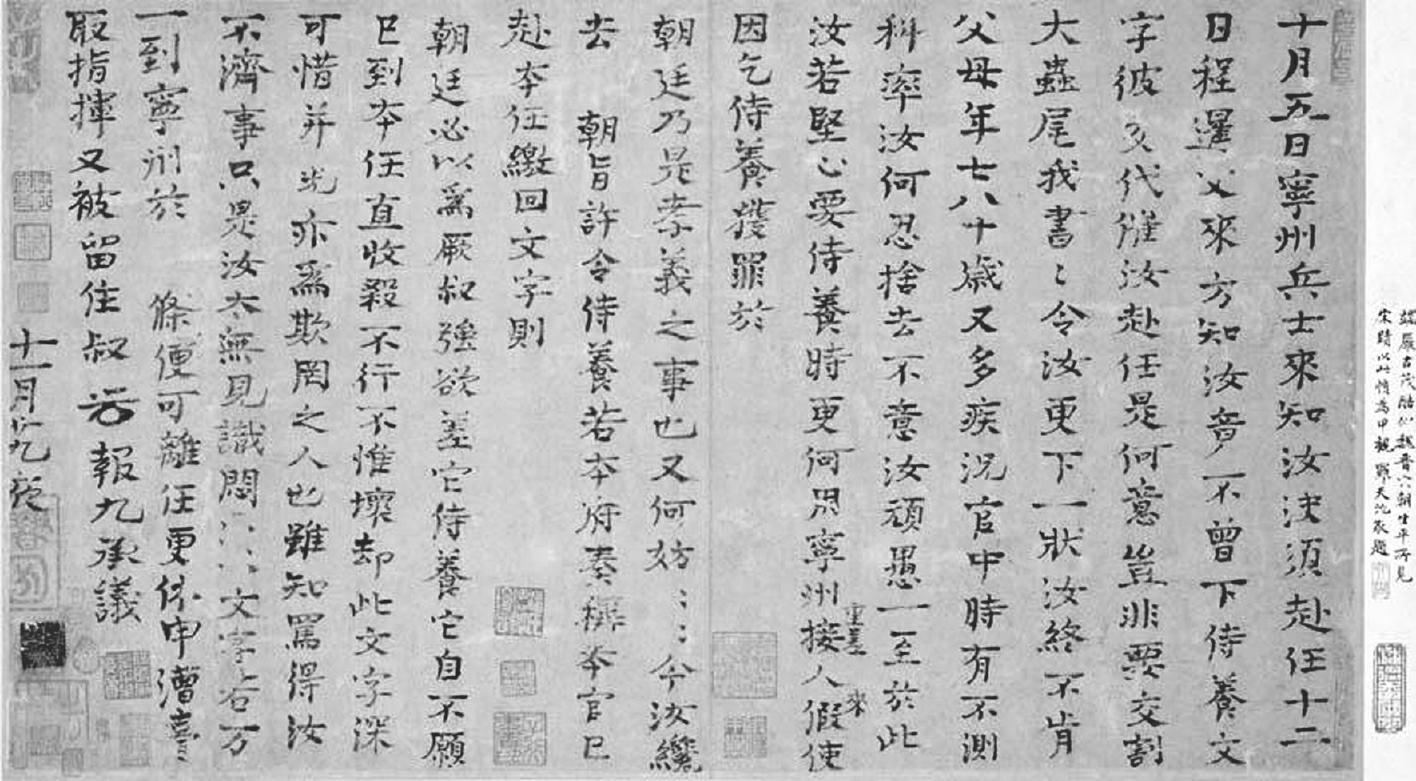 端嚴古茂酷似魏晉六朝生平所見
宋蹟以此幀為甲觀 天池敬題
十月五日寧州兵士來知汝決須赴任十二
日程暹父來方知汝音不曾下侍養文
字彼交代催汝赴任是何意豈非要交割
大蟲尾我書〻令汝更下一狀汝終不肯
父母年七八十歲又多疾況官中時有不測
科率汝何忍捨去不意汝頑愚一至於此
汝若堅心要侍養時更何用寧州重差接人來假使
因乞侍養獲罪於
朝廷乃是孝義之事也又何妨〻〻今汝纔
去 朝旨許令侍養若本府奏稱本官已
赴本任繳回文字則
朝廷必以爲厥叔強欲差它侍養它自不願
已到本任直收殺不行不惟壞却此文字深
可惜并光亦爲欺罔之人也雖知罵得汝
不濟事只是汝太無見識悶〻〻文字若万
一到寧州於 條便可離任更休申漕臺
取指揮又被留住叔 報九承議
十一月九夜